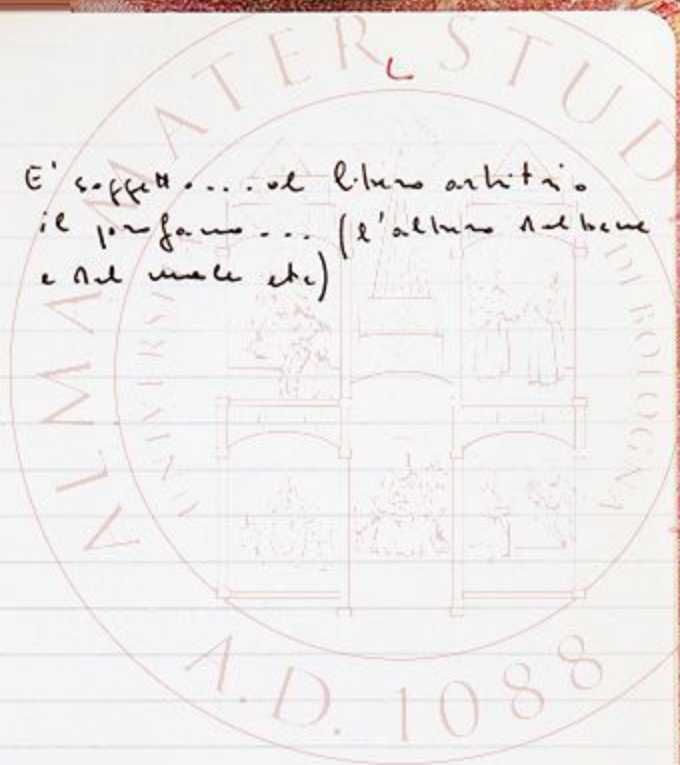 E' soggett.... al libero arbitrio
il profano... (l'albero del bene
e del male etc)
ALMA MATER STUD
UNIVERSI DI BOLOGNA
A.D. 1088